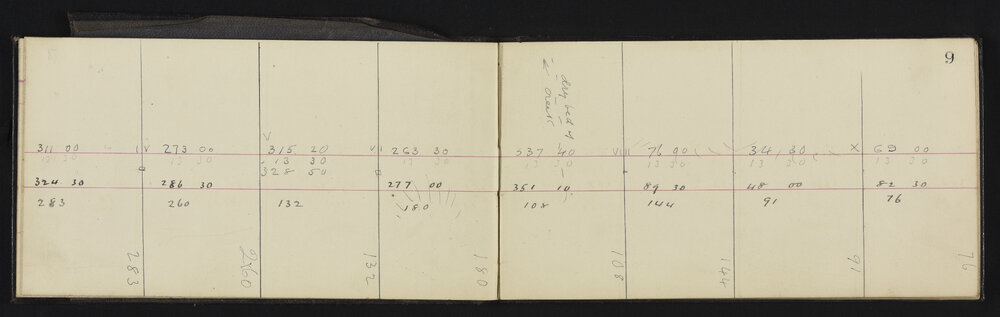 9
dry bed of
creek
311 00
13 30
324 30
283
283
IV
273 00
13 30
286 30
260
2X60
V
315 20
13 30
328 50
132
132
VI
263 30
13 30
277 00
180
180
337 40
13 30
351 10
108
108
VIII
76 00
13 30
89 30
144
144
34 30
13 30
48 00
91
91
X
69 00
13 30
82 30
76
76